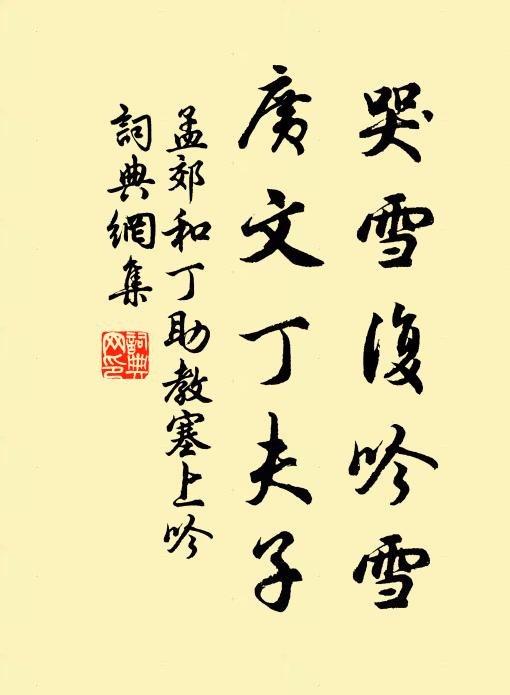 哭雪復吟雪
廣文丁夫子
孟郊和丁助教塞上吟
詞典網集
詞典網印